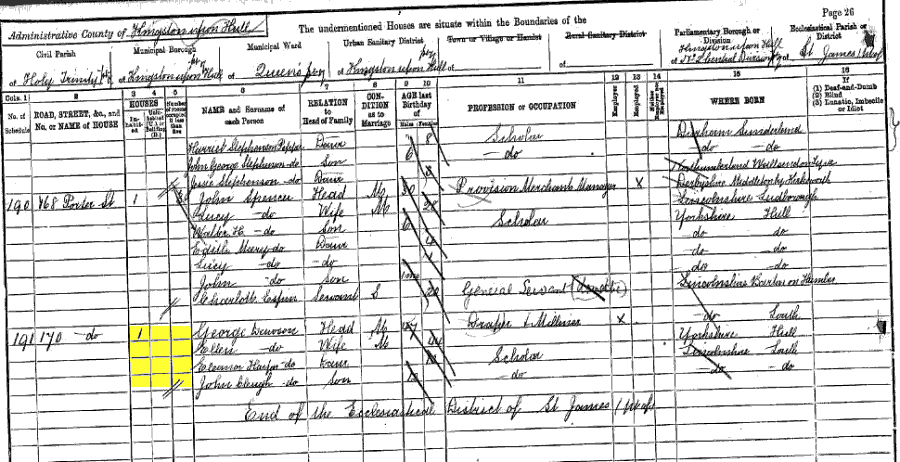 Page 26
Administrative County of Kingston upon Hull
The undermentioned Houses are situate within the Boundaries of the
Civil Parish
of Holy Trinity
Municipal Borough
of Kingston upon Hull
Municipal Ward
of Queens
Urban Sanitary District
of Kingston upon Hull
Town or Village or Hamlet
of
Rural Sanitary District
of
Parliamentary Borough or Division
of Kingston upon Hull
Ecclesiastical Parish or District
of St James
Cols. 1 2 3 4 5 6 7 8 9 10 11 12 13 14 15 16
No. of Schedule
ROAD, STREET, &c., and No. or NAME of HOUSE
HOUSES
NAME and Surname of each Person
RELATION to Head of Family
CONDITION as to Marriage
AGE last Birthday of
Males Females
PROFESSION or OCCUPATION
Employer
Employed
WHERE BORN
If
(1) Deaf-and-Dumb
(2) Blind
(3) Lunatic, Imbecile or Idiot
Harriet Stephenson Daur 8 Scholar Durham Sunderland
John George Stephenson do Son 6 do do do
Stephenson do Daur Northumberland
190 168 Porter St 1 John Spencer Head M 30 Provision Merchants Manager X Derbyshire Middleton by
Lucy do Wife M 28 Lincolnshire Ludborough
Walter H. do Son 6 Scholar Yorkshire Hull
Edith Mary do Daur 4 do do
Lucy do do do do
John do Son do do
Charlott Servant S 20 General Servant Lincolnshire Barton on Humber
191 170 do 1 George Dawson Head M 47 Draper & Milliner X do Louth
Ellen do Wife M 44 Yorkshire Hull
Eleanor do Daur Scholar Lincolnshire Louth
John Clough do Son do do do
End of the Ecclesiastical District of St James